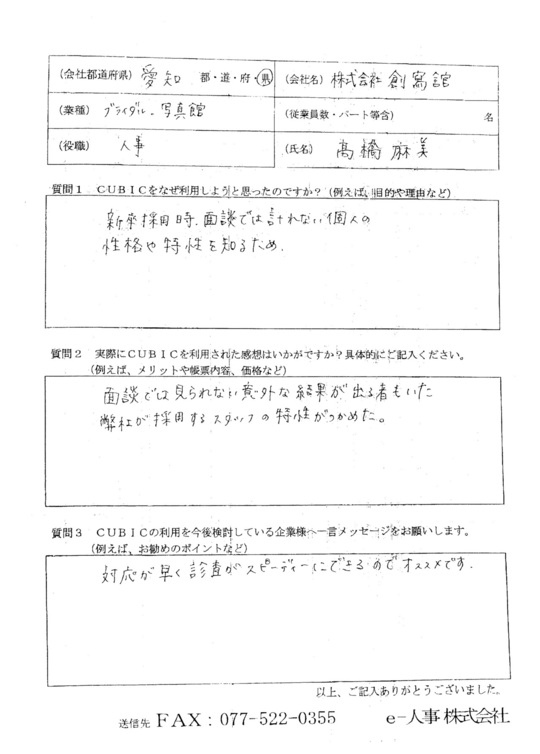 (会社都道府県) 愛知 都・道・府・県 (会社名) 株式会社 創寫舘
(業種) ブライダル・写真館 (従業員数・パート等含) 名
(役職) 人事 (氏名) 高橋 麻美
質問1 CUBICをなぜ利用しようと思ったのですか?(例えば、目的や理由など)
新卒採用時、面談では計れない個人の
性格や特性を知るため.
質問2 実際にCUBICを利用された感想はいかがですか?具体的にご記入ください。
(例えば、メリットや帳票内容、価格など)
面談では見られない意外な結果が出る者もいた
弊社が採用するスタッフの特性がつかめた。
質問3 CUBICの利用を今後検討している企業様へ一言メッセージをお願いします。
(例えば、お勧めのポイントなど)
対応が早く診査がスピーディーにできるのでオススメです.
以上、ご記入ありがとうございました。
送信先 FAX:077-522-0355 e-人事株式会社